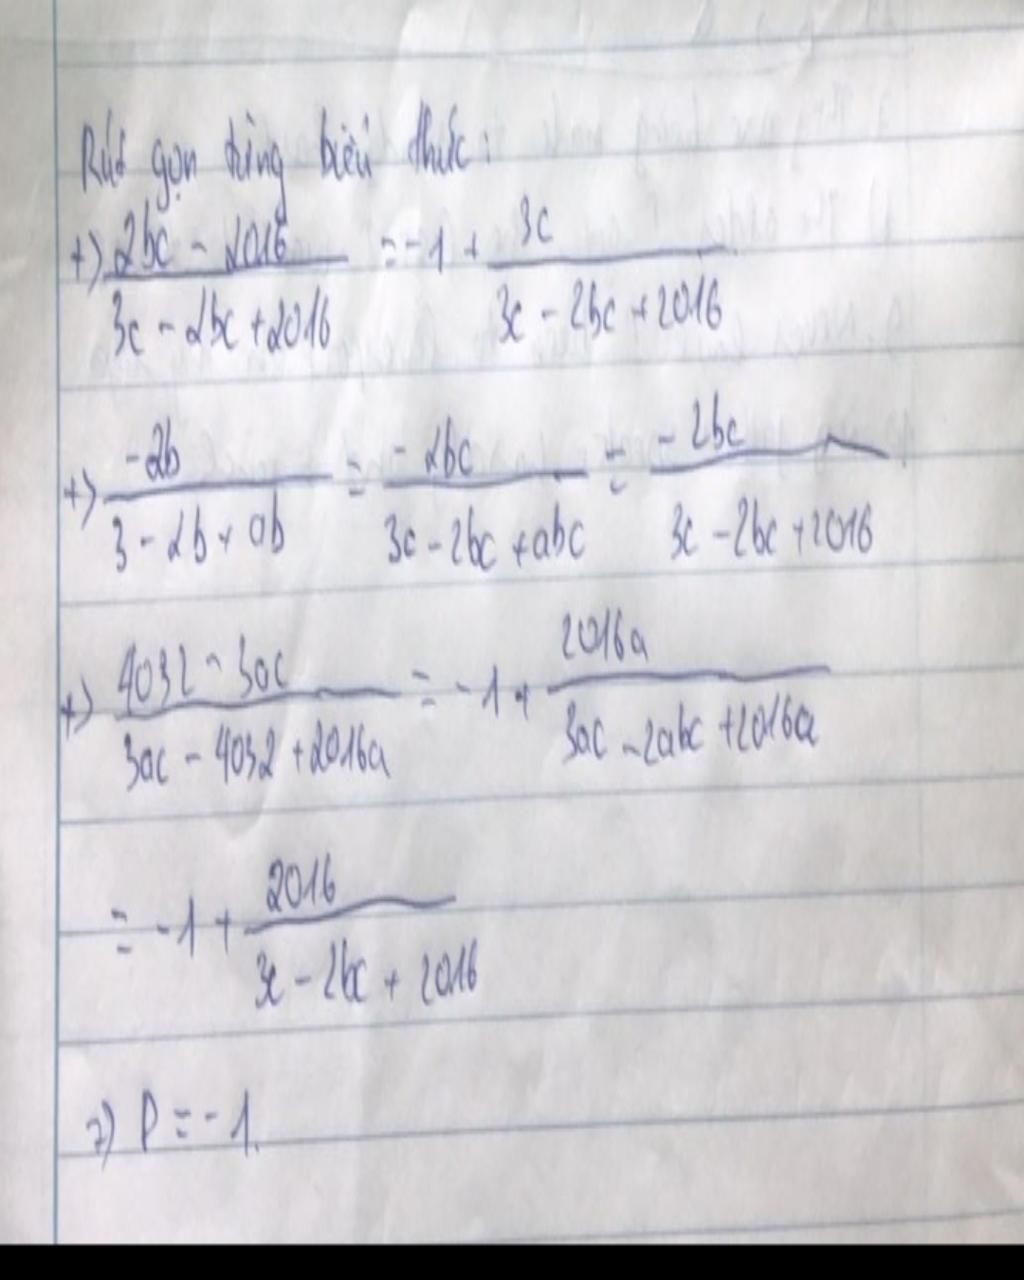 Rút gọn từng biểu thức:
+) (2bc - 2016)/(3c - 2bc + 2016) = -1 + 3c/(3c - 2bc + 2016)
+) -2b/(3 - 2b + ab) = -2bc/(3c - 2bc + abc) = -2bc/(3c - 2bc + 2016)
+) (4032 - 3ac)/(3ac - 4032 + 2016a) = -1 + 2016a/(3ac - 2abc + 2016a)
= -1 + 2016/(3c - 2bc + 2016)
=) P = -1.